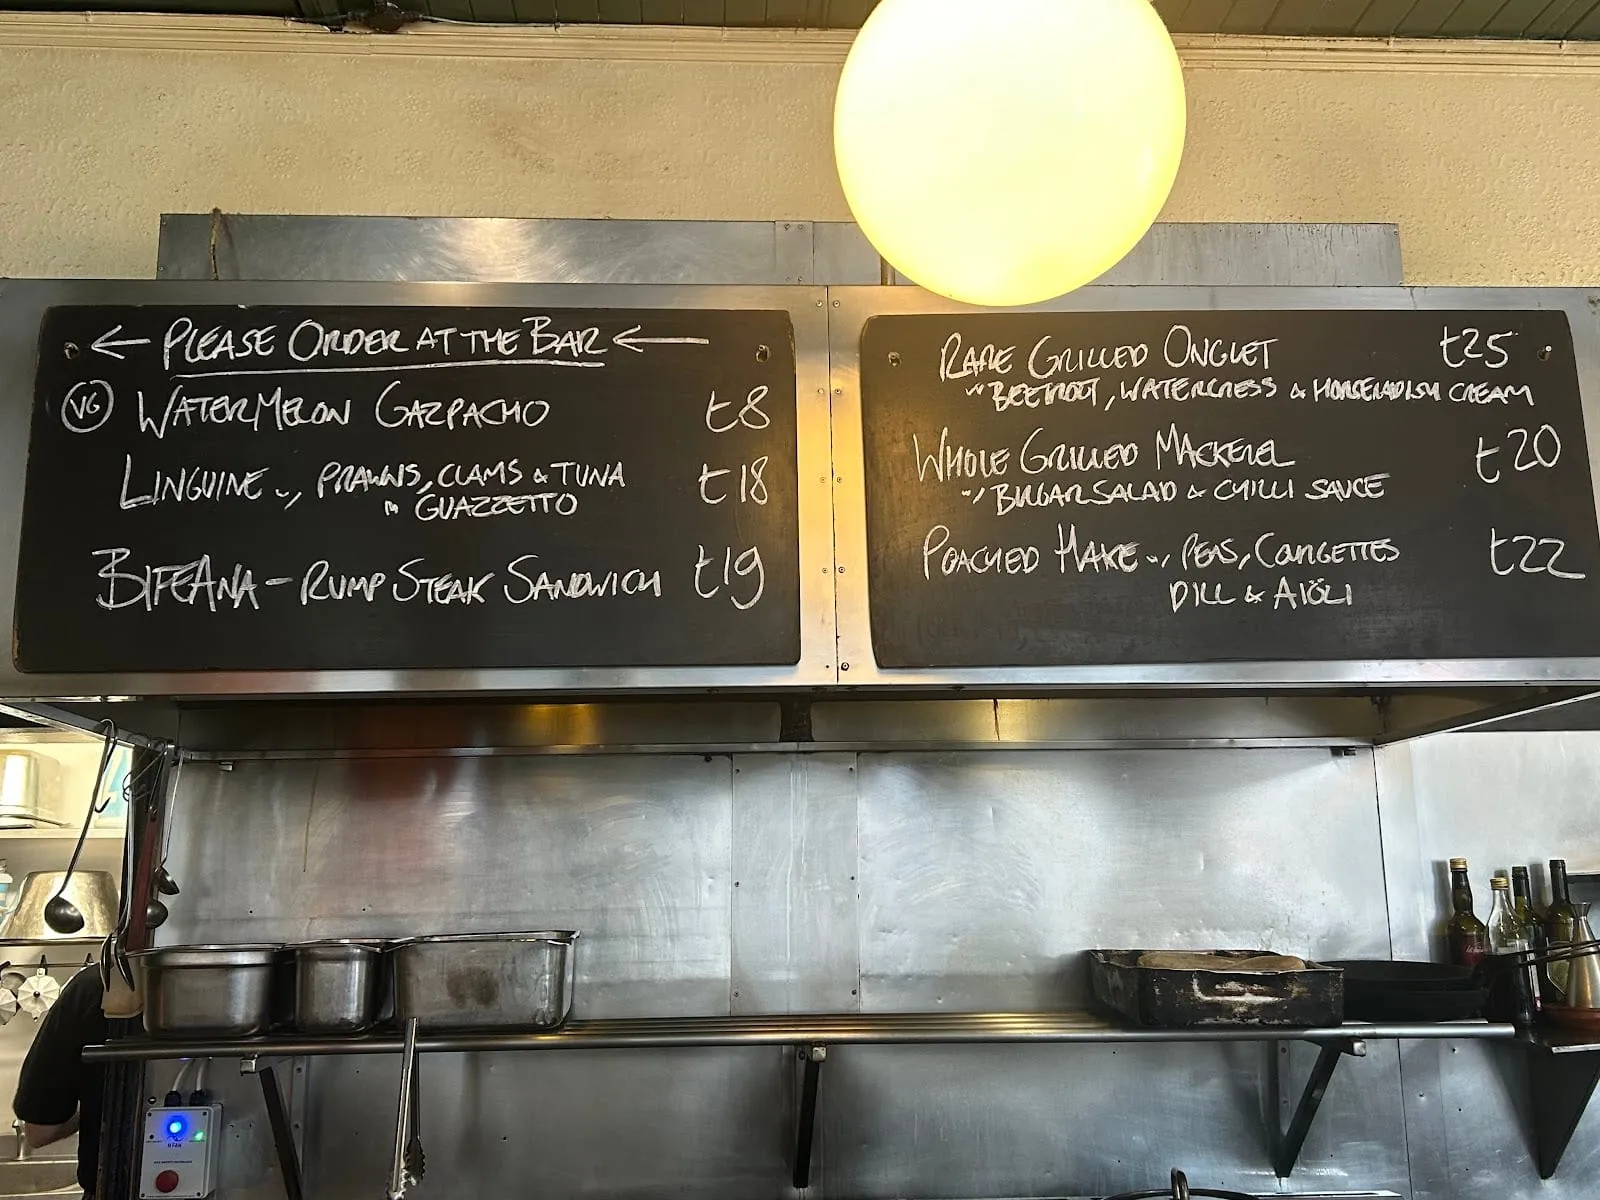 ← PLEASE ORDER AT THE BAR ←
VG WATERMELON GAZPACHO £8
LINGUINE w/ PRAWNS, CLAMS & TUNA £18
IN GUAZZETTO
BIFEANA - RUMP STEAK SANDWICH £19
RARE GRILLED ONGLET £25
w/ BEETROOT, WATERCRESS & HORSERADISH CREAM
WHOLE GRILLED MACKEREL £20
w/ BULGAR SALAD & CHILLI SAUCE
POACHED HAKE w/ PEAS, COURGETTES £22
DILL & AIÖLI